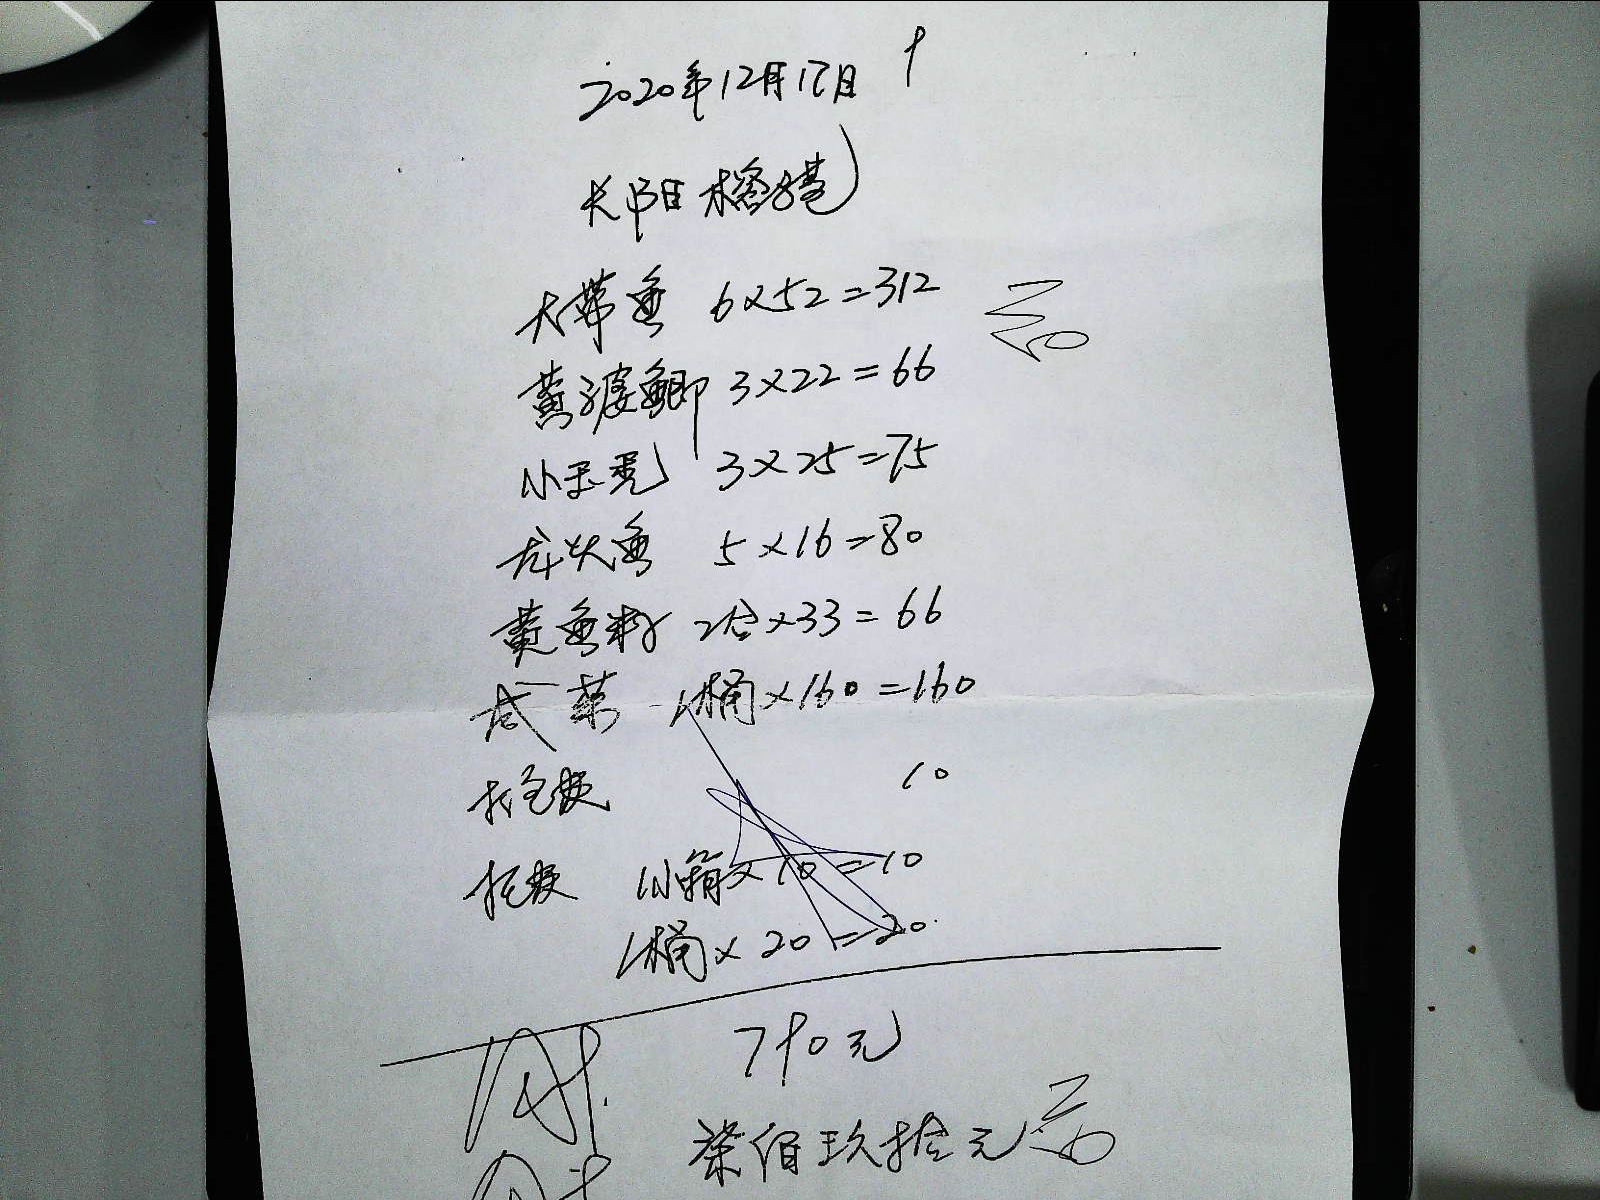 2020年12月17日
长阳榕港
大带鱼 6×52=312
黄婆鲫 3×22=66
小玉秃 3×25=75
龙头鱼 5×16=80
黄鱼籽 2合×33=66
咸菜 1桶×160=160
打包费 10
托费 1小箱×10=10
1桶×20=20
790元
柒佰玖拾元